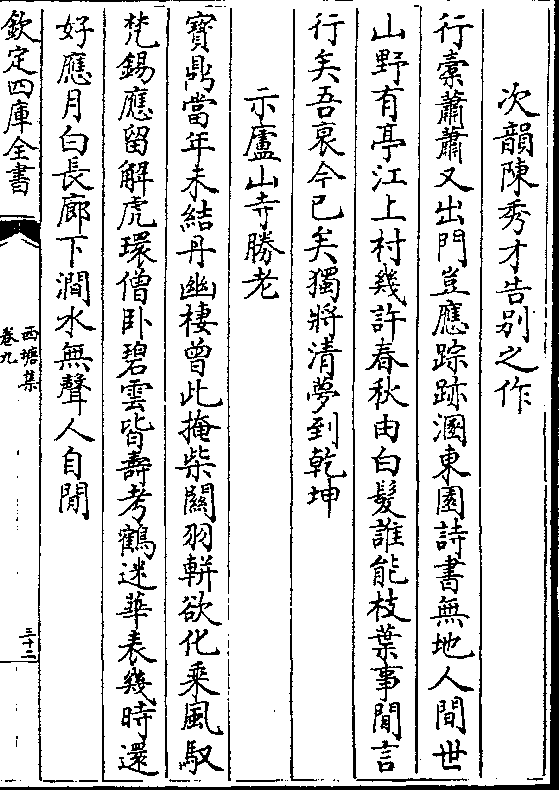 次韻陳秀才告别之作
行橐蕭蕭又出門豈應踪跡溷東園詩書無地人間世
山野有亭江上村幾許春秋由白髮誰能枝葉事閒言
行矣吾衰今已矣獨將清夢到乾坤
示廬山寺勝老
寳鼎當年未結丹幽棲曾此掩柴關羽軿欲化乘風馭
梵錫應留解虎環僧卧碧雲皆夀考鶴迷華表幾時還
好應月白長廊下澗水無聲人自閒
欽定四庫全書
西塘集
卷九
三十二